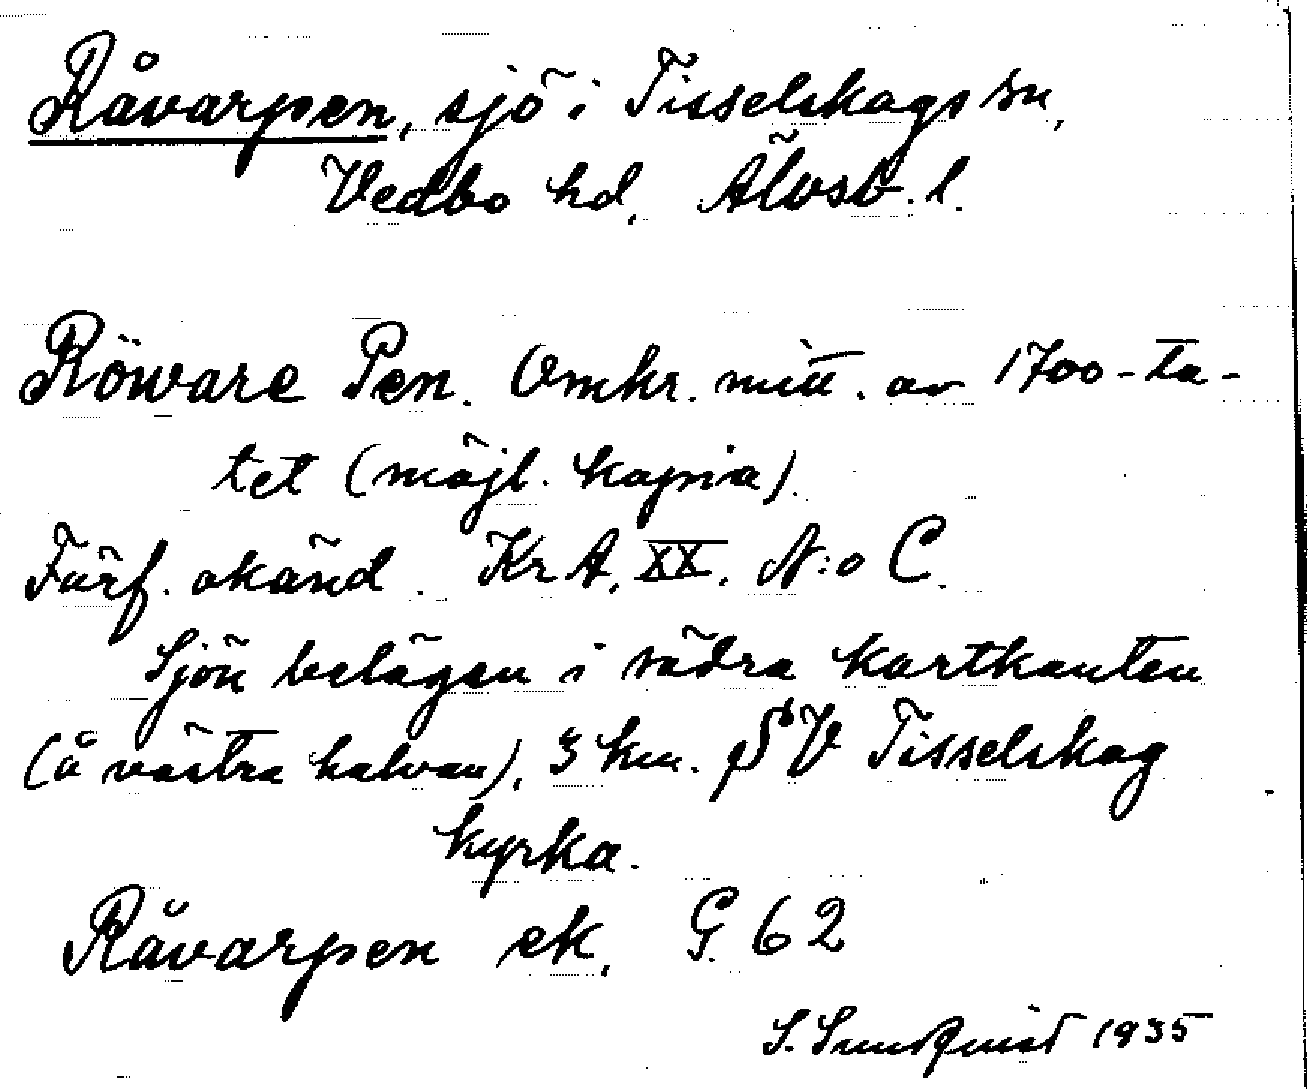 Råvarpen, sjö i Tisselskogs sn,
Vedbo hd, Älvsb. l.
Röware Pen. Omkr. mitt. av 1700-ta-
tet (möjl. kopia).
Förf. okänd. Kr A, XX, N:o C.
Sjön belägen i södra kartkanten
(å västra halvan), 3 km. SV Tisselskog
kyrka.
Råvarpen ek, G. 62
S. Sundquist 1935